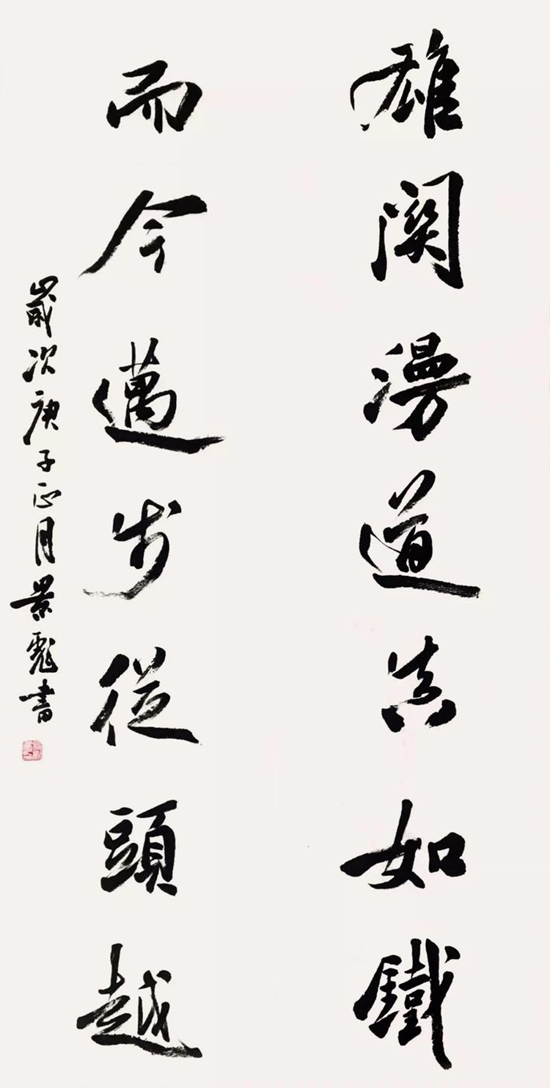 雄関漫道真如鐵
而今邁步從頭越
歲次庚子正月景彪書